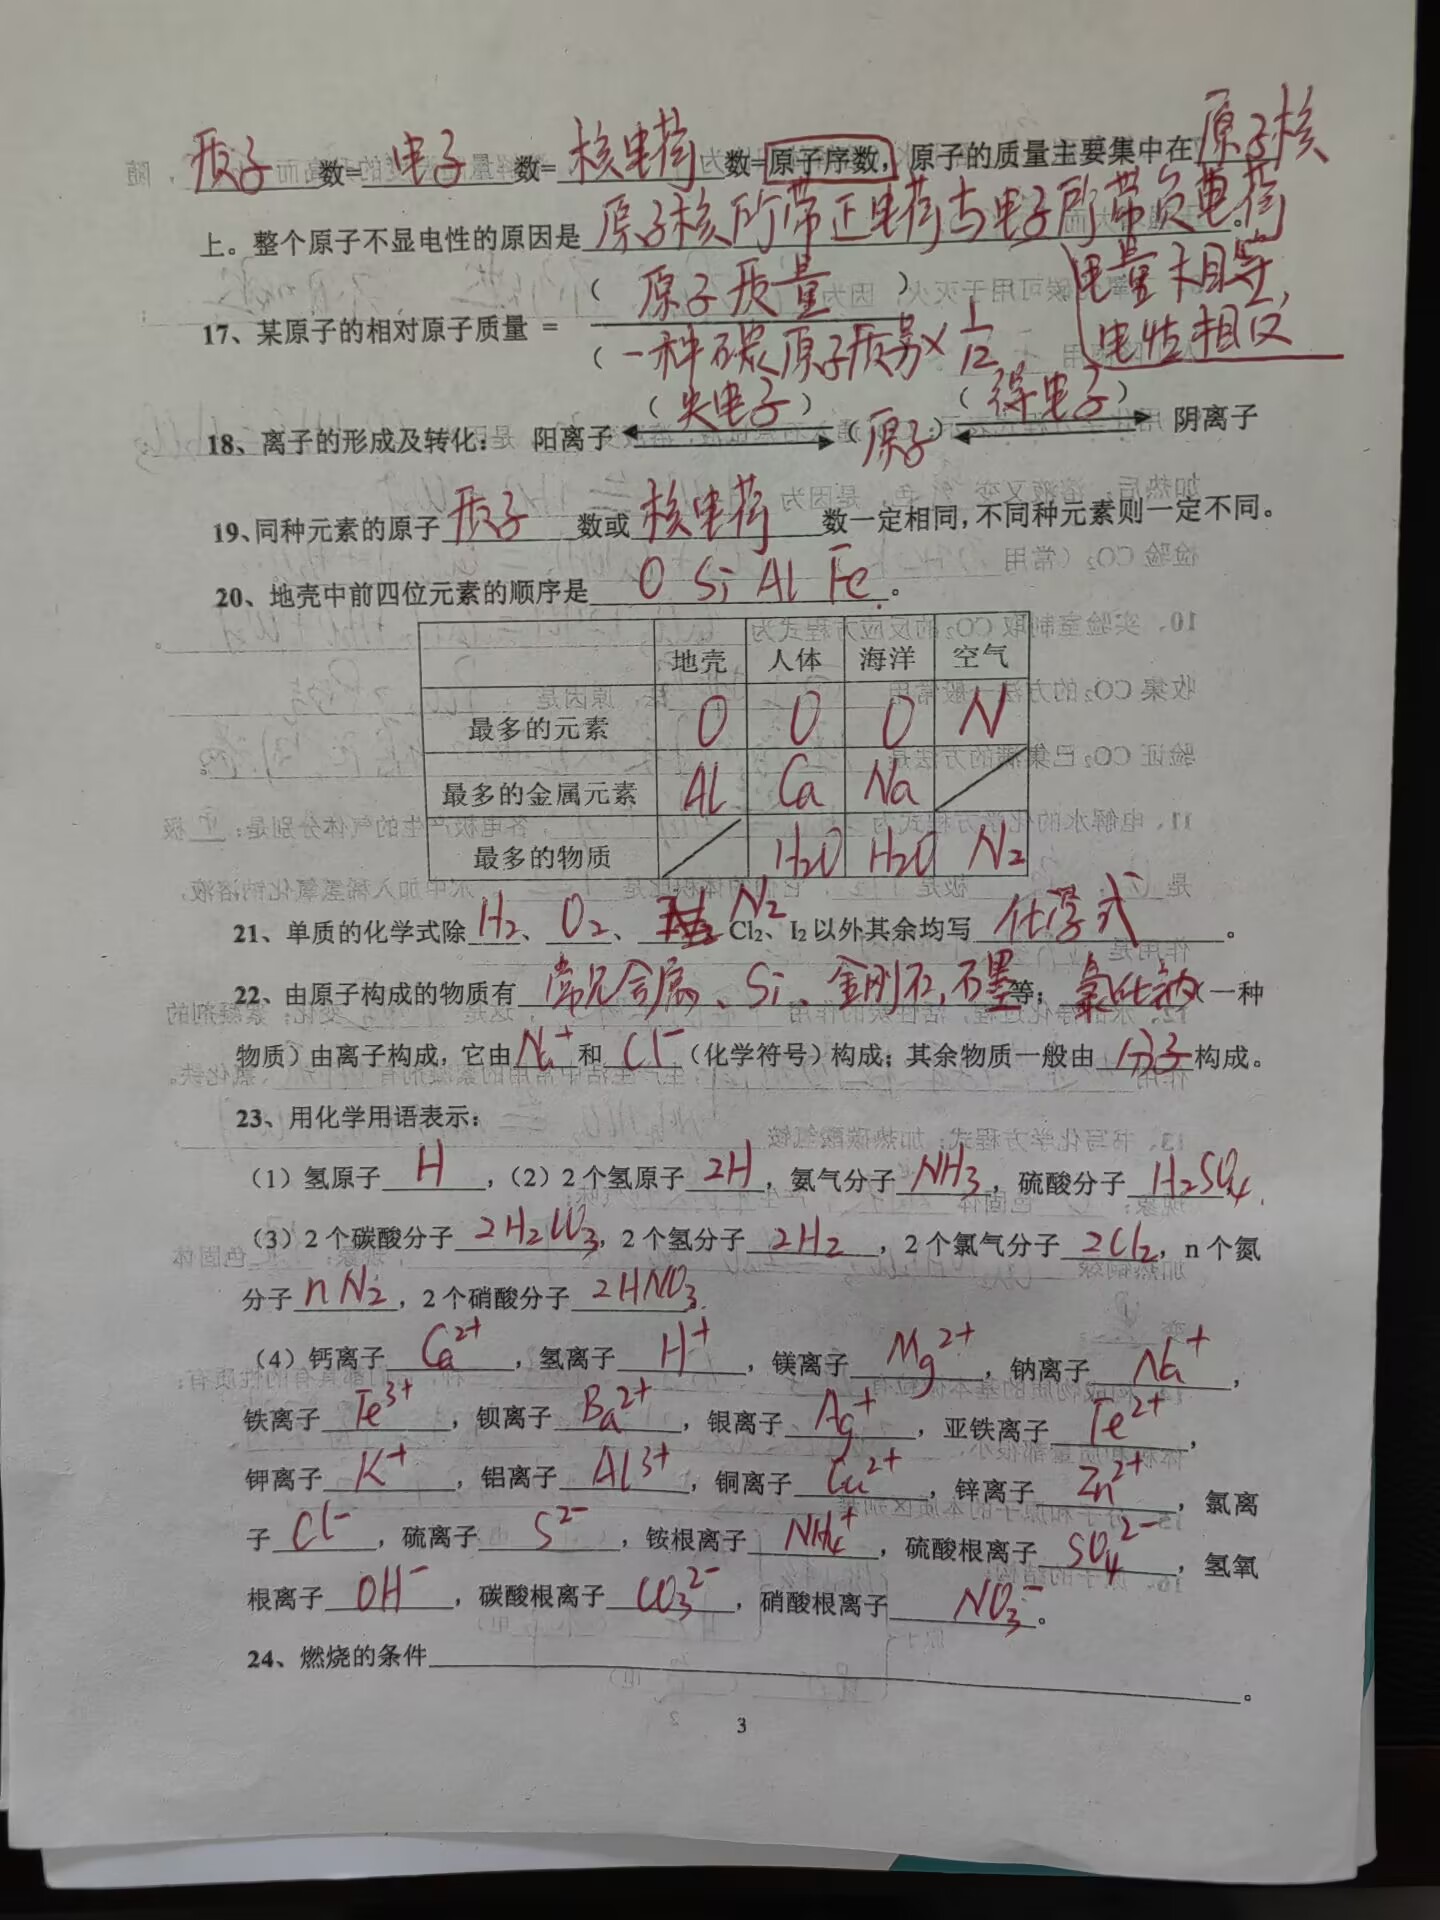 质子数=电子数=核电荷数=原子序数，原子的质量主要集中在原子核
上。整个原子不显电性的原因是原子核所带正电荷与电子所带负电荷。
电量相等，
电性相反
17、某原子的相对原子质量 =
（原子质量）
（一种碳原子质量×1/12
18、离子的形成及转化： 阳离子（失电子）（原子）（得电子）阴离子
19、同种元素的原子质子数或核电荷数一定相同，不同种元素则一定不同。
20、地壳中前四位元素的顺序是O Si Al Fe。
地壳 人体 海洋 空气
最多的元素 O O O N
最多的金属元素 Al Ca Na
最多的物质 H2O H2O N2
21、单质的化学式除H2、O2、N2 Cl2、I2以外其余均写化学式。
22、由原子构成的物质有常见金属、Si、金刚石，石墨等；氯化钠（一种
物质）由离子构成，它由Na+和Cl-（化学符号）构成；其余物质一般由分子构成。
23、用化学用语表示：
（1）氢原子H，（2）2个氢原子2H，氨气分子NH3，硫酸分子H2SO4.
（3）2个碳酸分子2H2CO3，2个氢分子2H2，2个氯气分子2Cl2，n个氮
分子nN2，2个硝酸分子2HNO3.
（4）钙离子Ca2+，氢离子H+，镁离子Mg2+，钠离子Na+，
铁离子Fe3+，钡离子Ba2+，银离子Ag+，亚铁离子Fe2+，
钾离子K+，铝离子Al3+，铜离子Cu2+，锌离子Zn2+，氯离
子Cl-，硫离子S2-，铵根离子NH4+，硫酸根离子SO42-，氢氧
根离子OH-，碳酸根离子CO32-，硝酸根离子NO3-。
24、燃烧的条件。
3